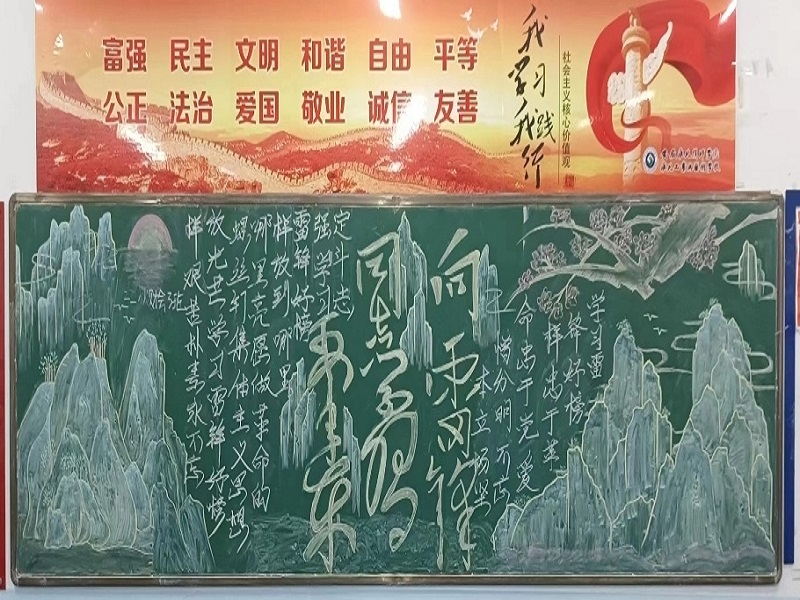 富强 民主 文明 和谐 自由 平等
公正 法治 爱国 敬业 诚信 友善
我学习
我践行
社会主义核心价值观
学习雷
锋好榜
样忠于革
命忠于党爱
憎分明不忘
本立场坚
向雷锋
同志学习
毛泽东
定斗志
强学习
雷锋好榜
样放到哪里
哪里亮愿做革命的
螺丝钉集体主义思想
放光芒学习雷锋好榜
样艰苦朴素永不忘